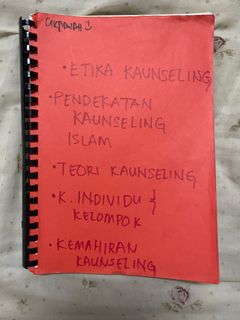 • ETIKA KAUNSELING
• PENDEKATAN
KAUNSELING
ISLAM
• TEORI KAUNSELING
• K. INDIVIDU &
KELOMPOK
• KEMAHIRAN
KAUNSELING